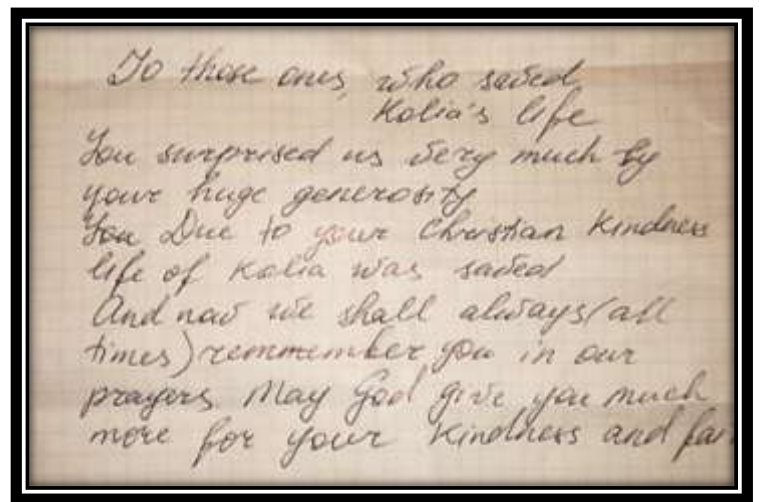 To those ones, who saved
Kolia's life
You surprised us very much by
your huge generosity
You Due to your Christian Kindness
life of Kolia was saved
And now we shall always (all
times) remmember you in our
prayers. May God give you much
more for your Kindness and